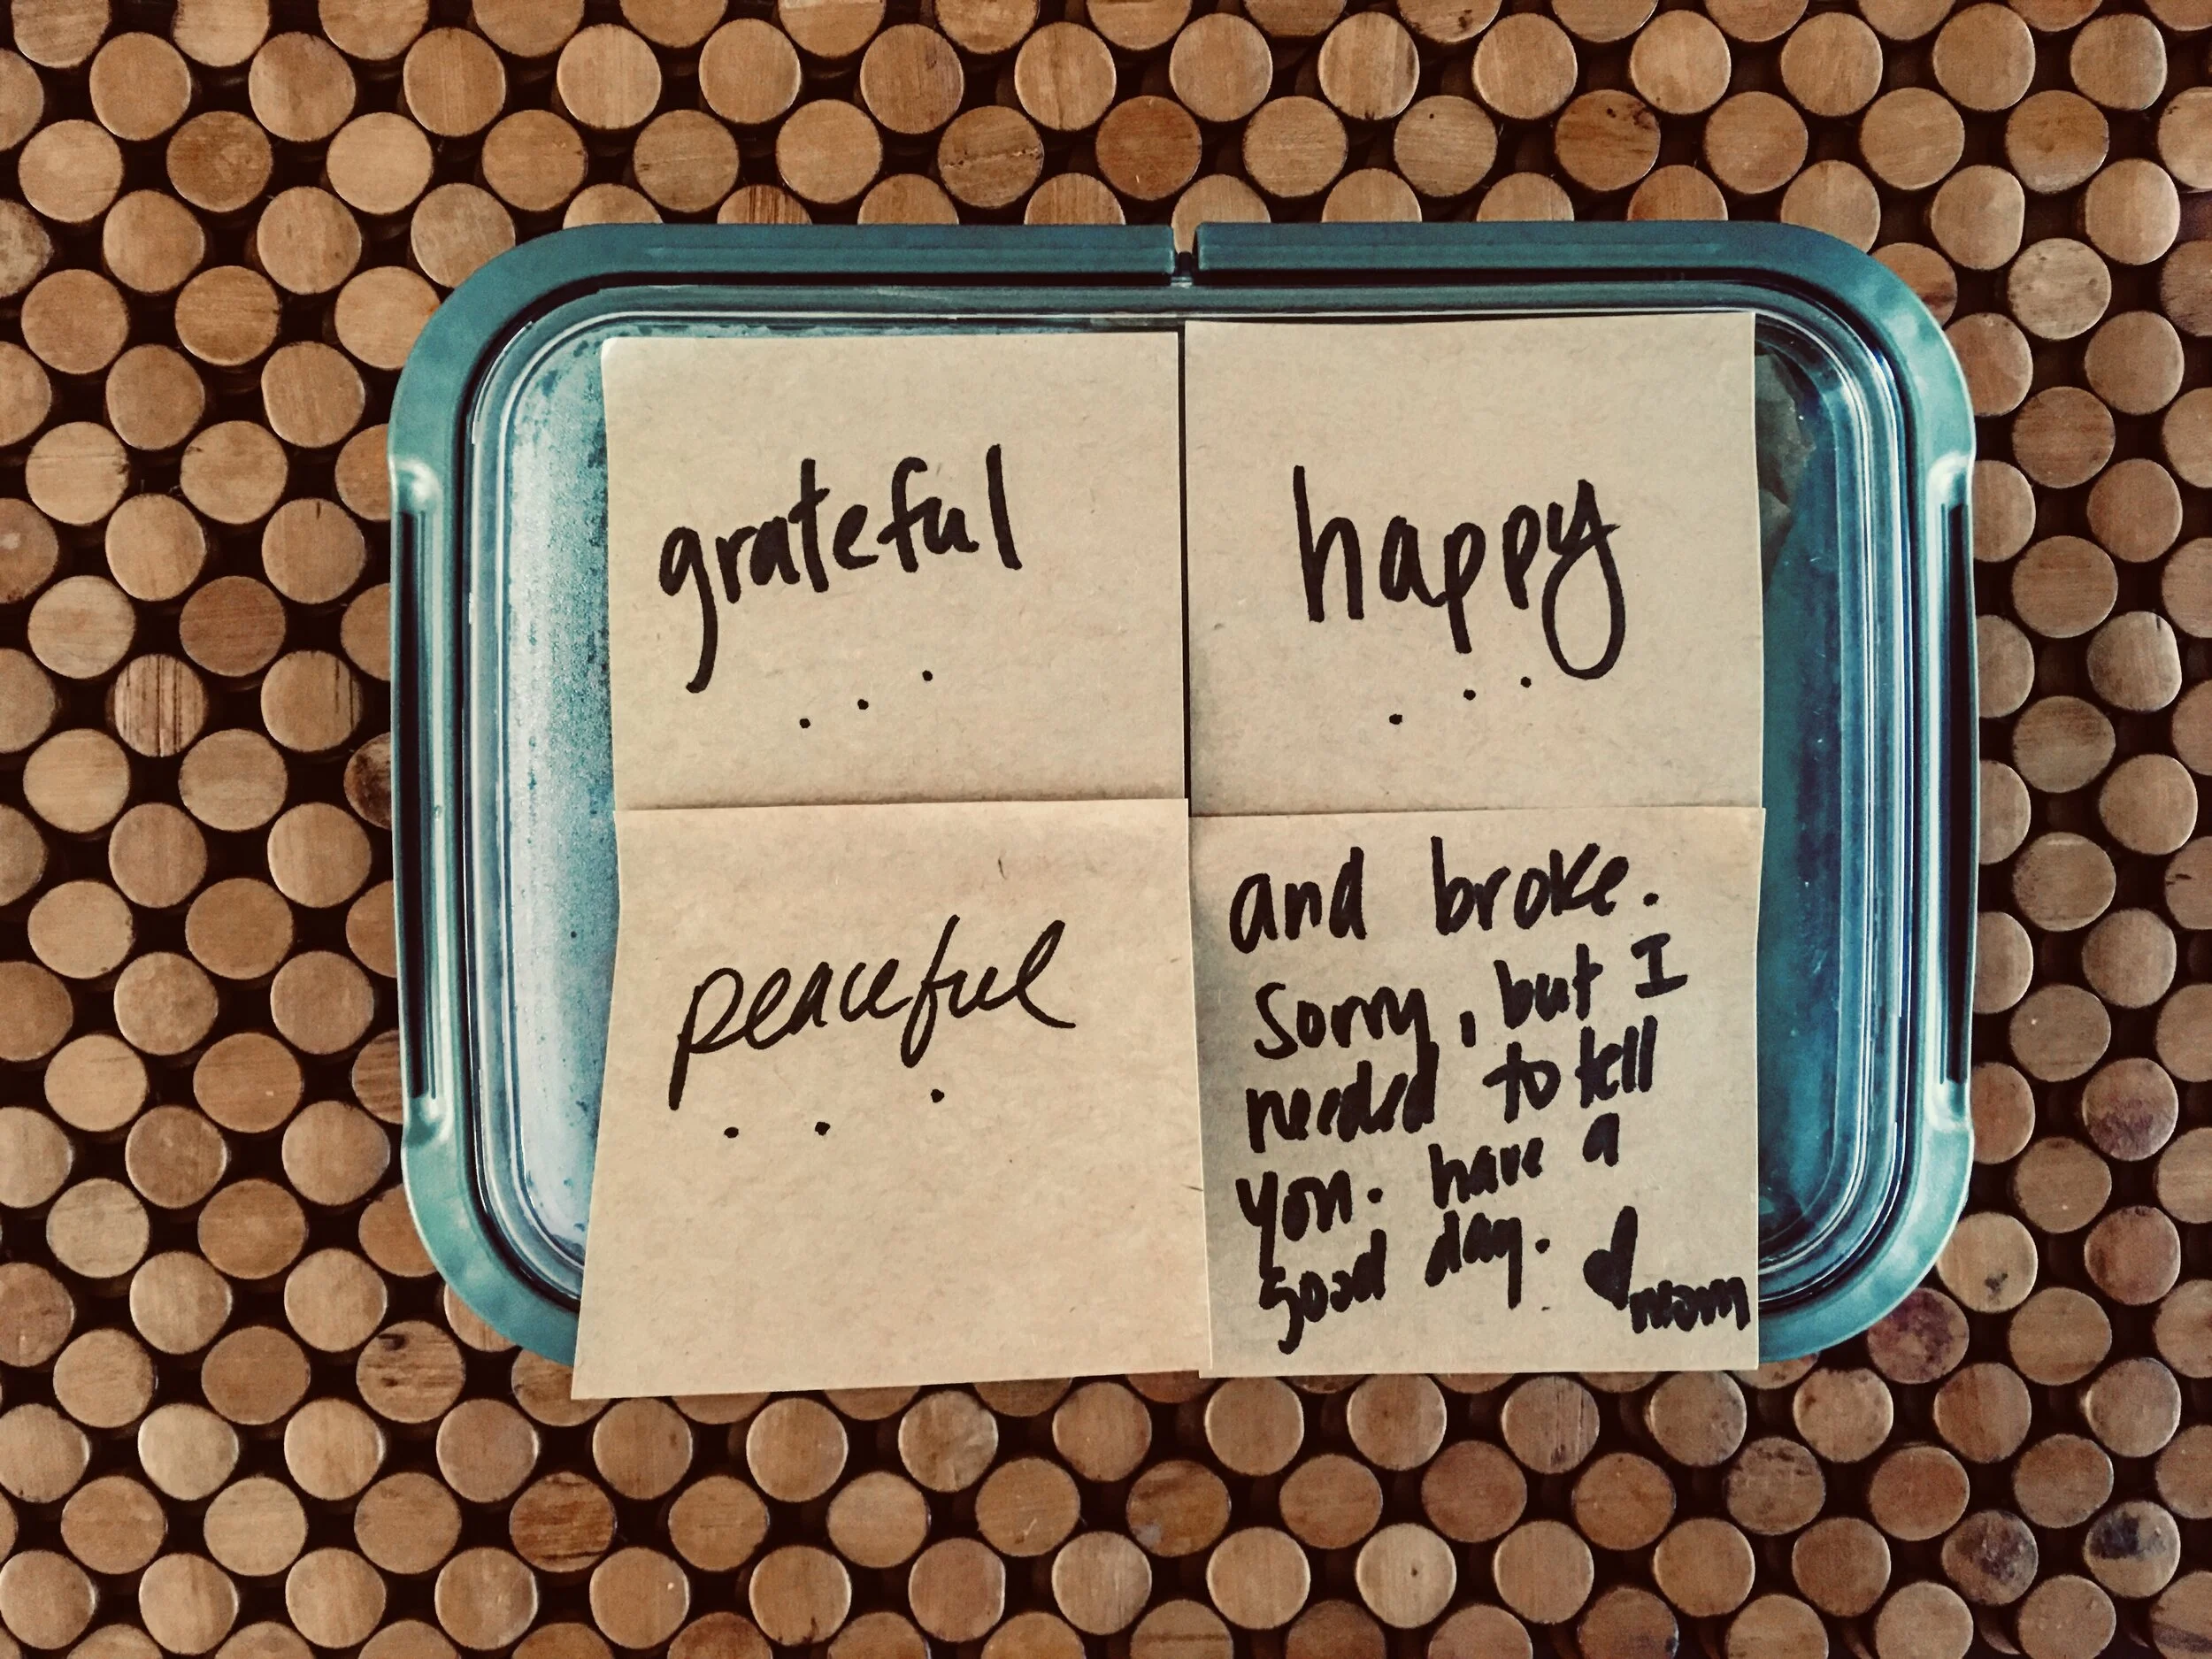 grateful
...
happy
...
peaceful
...
and broke.
Sorry, but I
needed to tell
you. have a
good day. ♥
mom